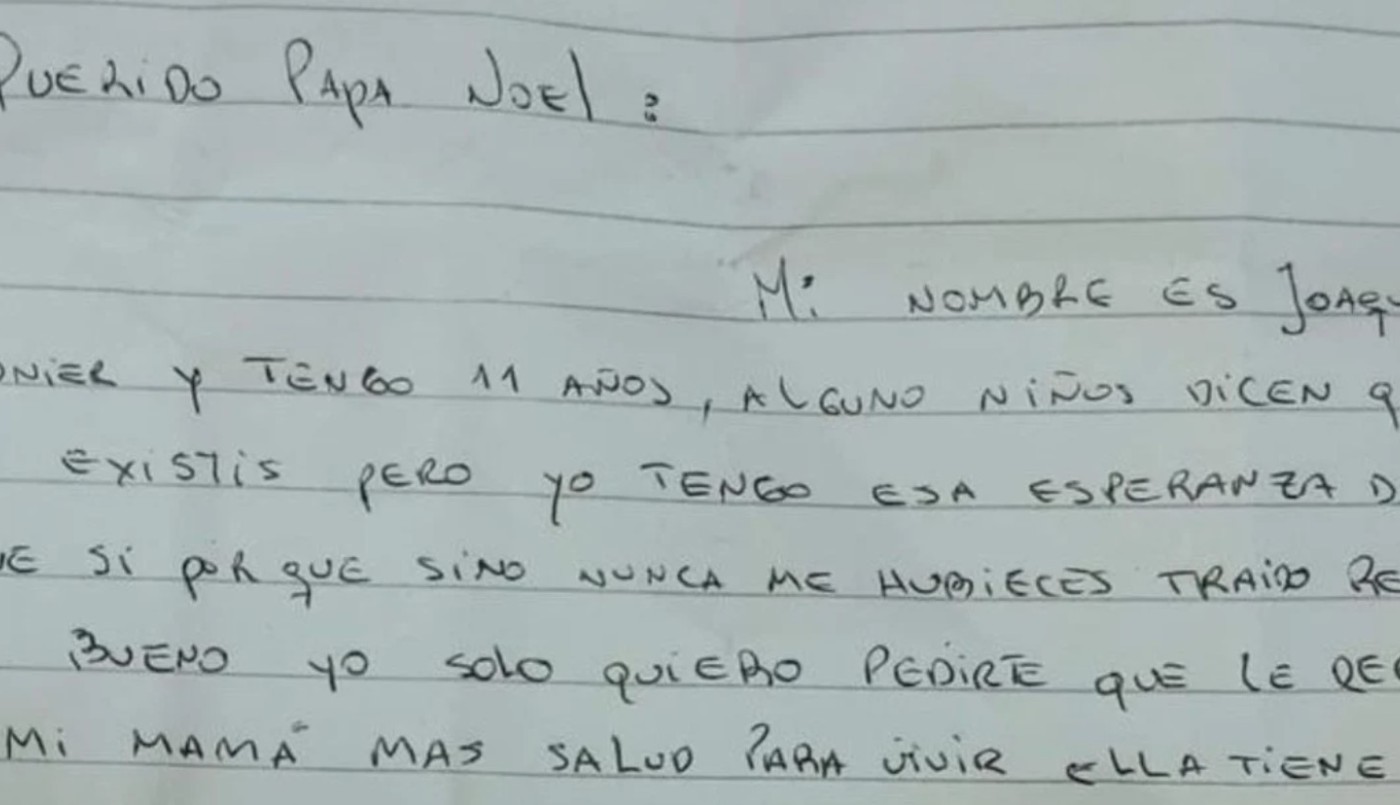 QUERIDO PAPA NOEL :
Mi NOMBRE ES JOAQU
ONIER Y TENGO 11 AÑOS, ALGUNO NIÑOS DICEN Q
EXISTIS PERO YO TENGO ESA ESPERANZA D
UE SI POR QUE SINO NUNCA ME HUBIECES TRAIDO RE
BUENO YO SOLO QUIERO PEDIRTE QUE LE REG
Mi MAMÁ MAS SALUD PARA VIVIR ELLA TIENE